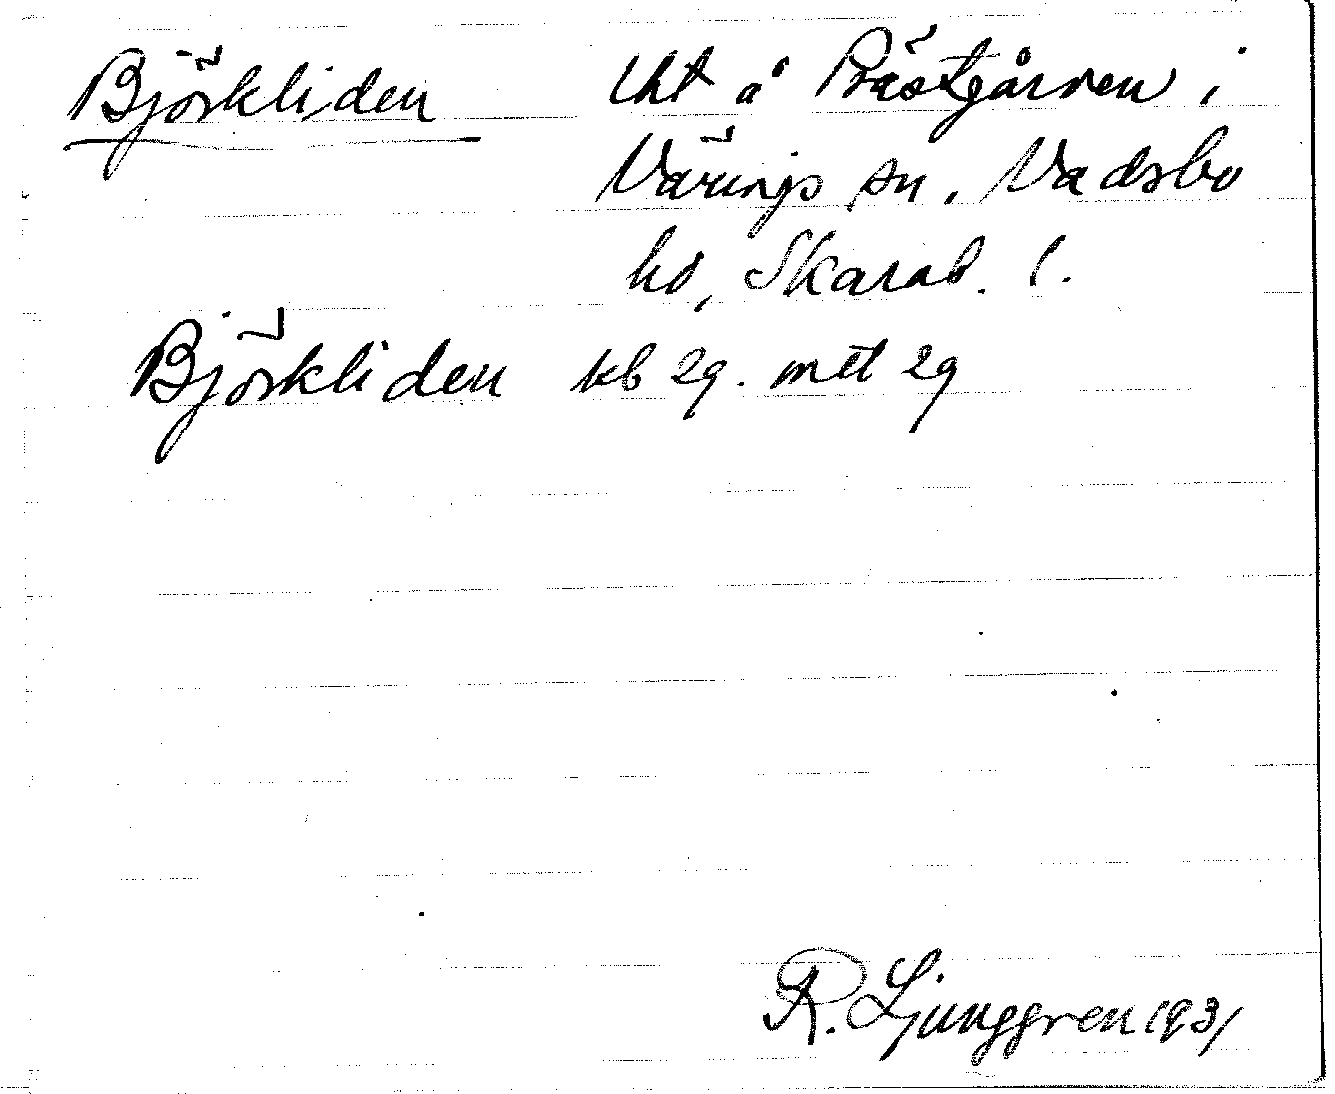 Björkliden Lht å Prästgården i
Värings sn, Vadsbo
hd, Skarab. l.
Björkliden kb 29. mtl 29
R. Ljunggren 1931